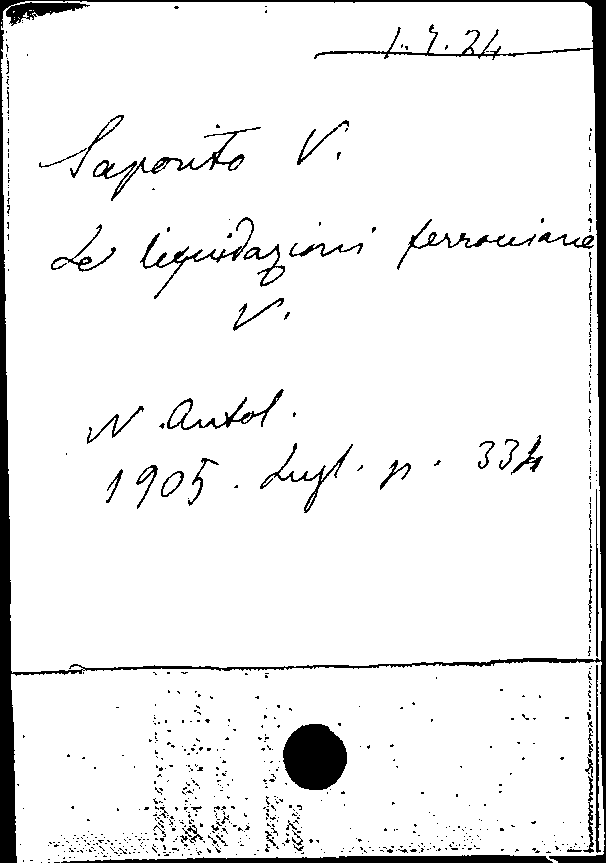 1.7.24
Saporito V.
Le liquidazioni ferroviarie
V.
N. Antol.
1905. Lugl. p. 334